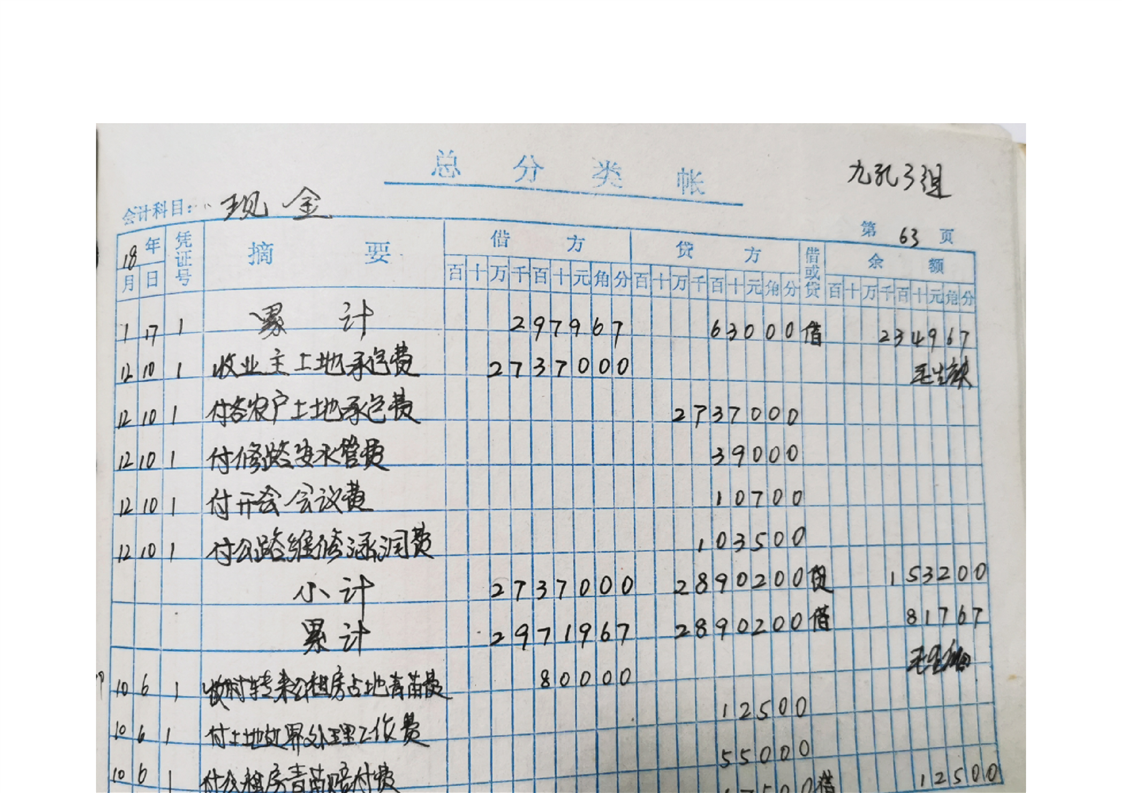 总分类帐
九孔3组
会计科目: 现金
第 63 页
18年 凭证号 摘要 借方 贷方 借或贷 余额
月 日 百十万千百十元角分 百十万千百十元角分 百十万千百十元角分
1 17 1 累计 297967 63000 借 234967
12 10 1 收业主土地承包费 2737000
12 10 1 付各农户土地承包费 2737000
12 10 1 付修路安水管费 39000
12 10 1 付开会会议费 10700
12 10 1 付公路维修涵洞费 103500
小计 2737000 2890200 贷 153200
累计 2971967 2890200 借 81767
10 6 1 收村转来公租房占地青苗费 80000
10 6 1 付土地边界处理工作费 12500
10 6 1 付公租房青苗赔付费 55000
借 12500